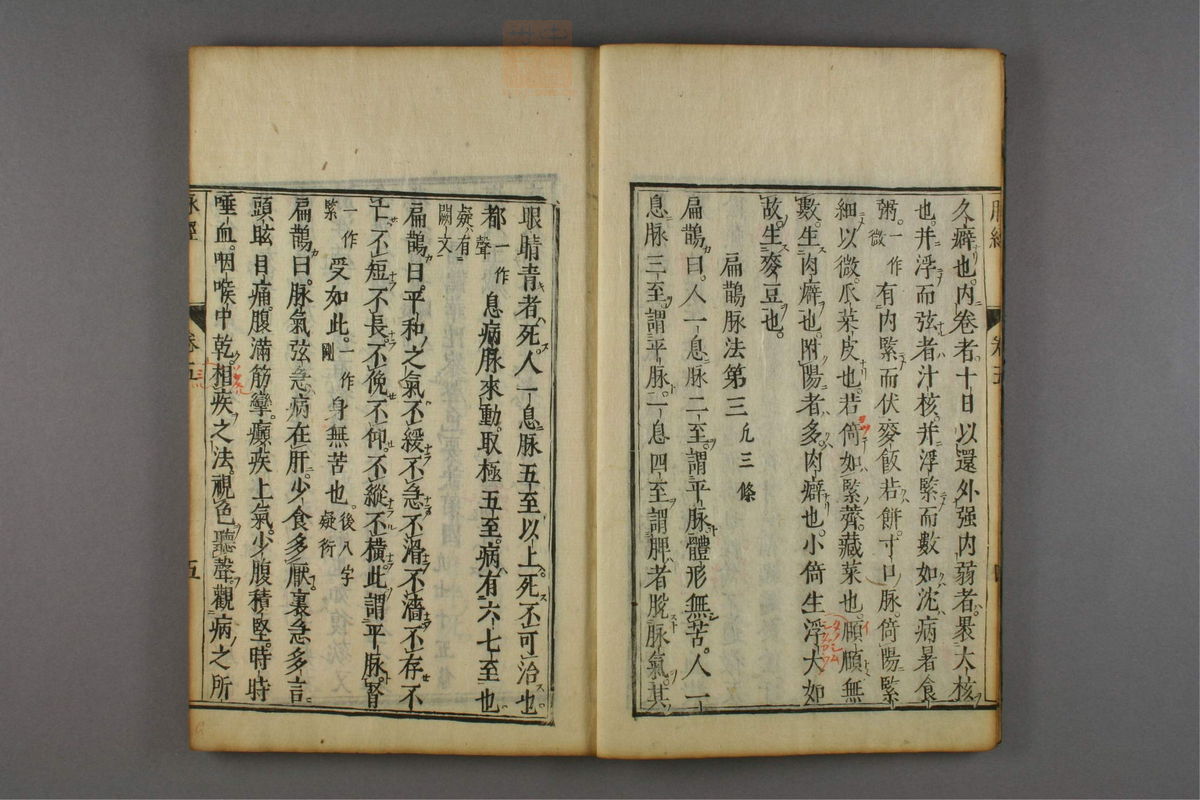 久癖也内卷者十日以還外强内弱者裹大核
也并浮而弦者汁核并浮緊而數如沈病暑食
粥一作微有内緊而伏麥飯若餅寸口脉倚陽緊
細以微瓜菜皮也若倚如緊薺藏菜也賾賾無
數生肉癖也附陽者多肉癖也小倚生浮大如
故生麥豆也
扁鵲脉法第三 凢三條
扁鵲曰人一息脉二至謂平脉體形無苦人一
息脉三至謂平脉一息四至謂痹者脱脉氣其
眼睛青者死人一息脉五至以上死不可治也
都一作聲息病脉來動取極五至病有六七至也
疑有闕文
扁鵲曰平和之氣不緩不急不滑不濇不存不
亡不短不長不俛不仰不縱不橫此謂平脉腎
一作緊受如此一作剛身無苦也後八字疑衍
扁鵲曰脉氣弦急病在肝少食多厭裏急多言
頭眩目痛腹滿筋攣癲疾上氣少腹積堅時時
唾血咽喉中乾相疾之法視色聽聲觀病之所
脉經 卷五 五